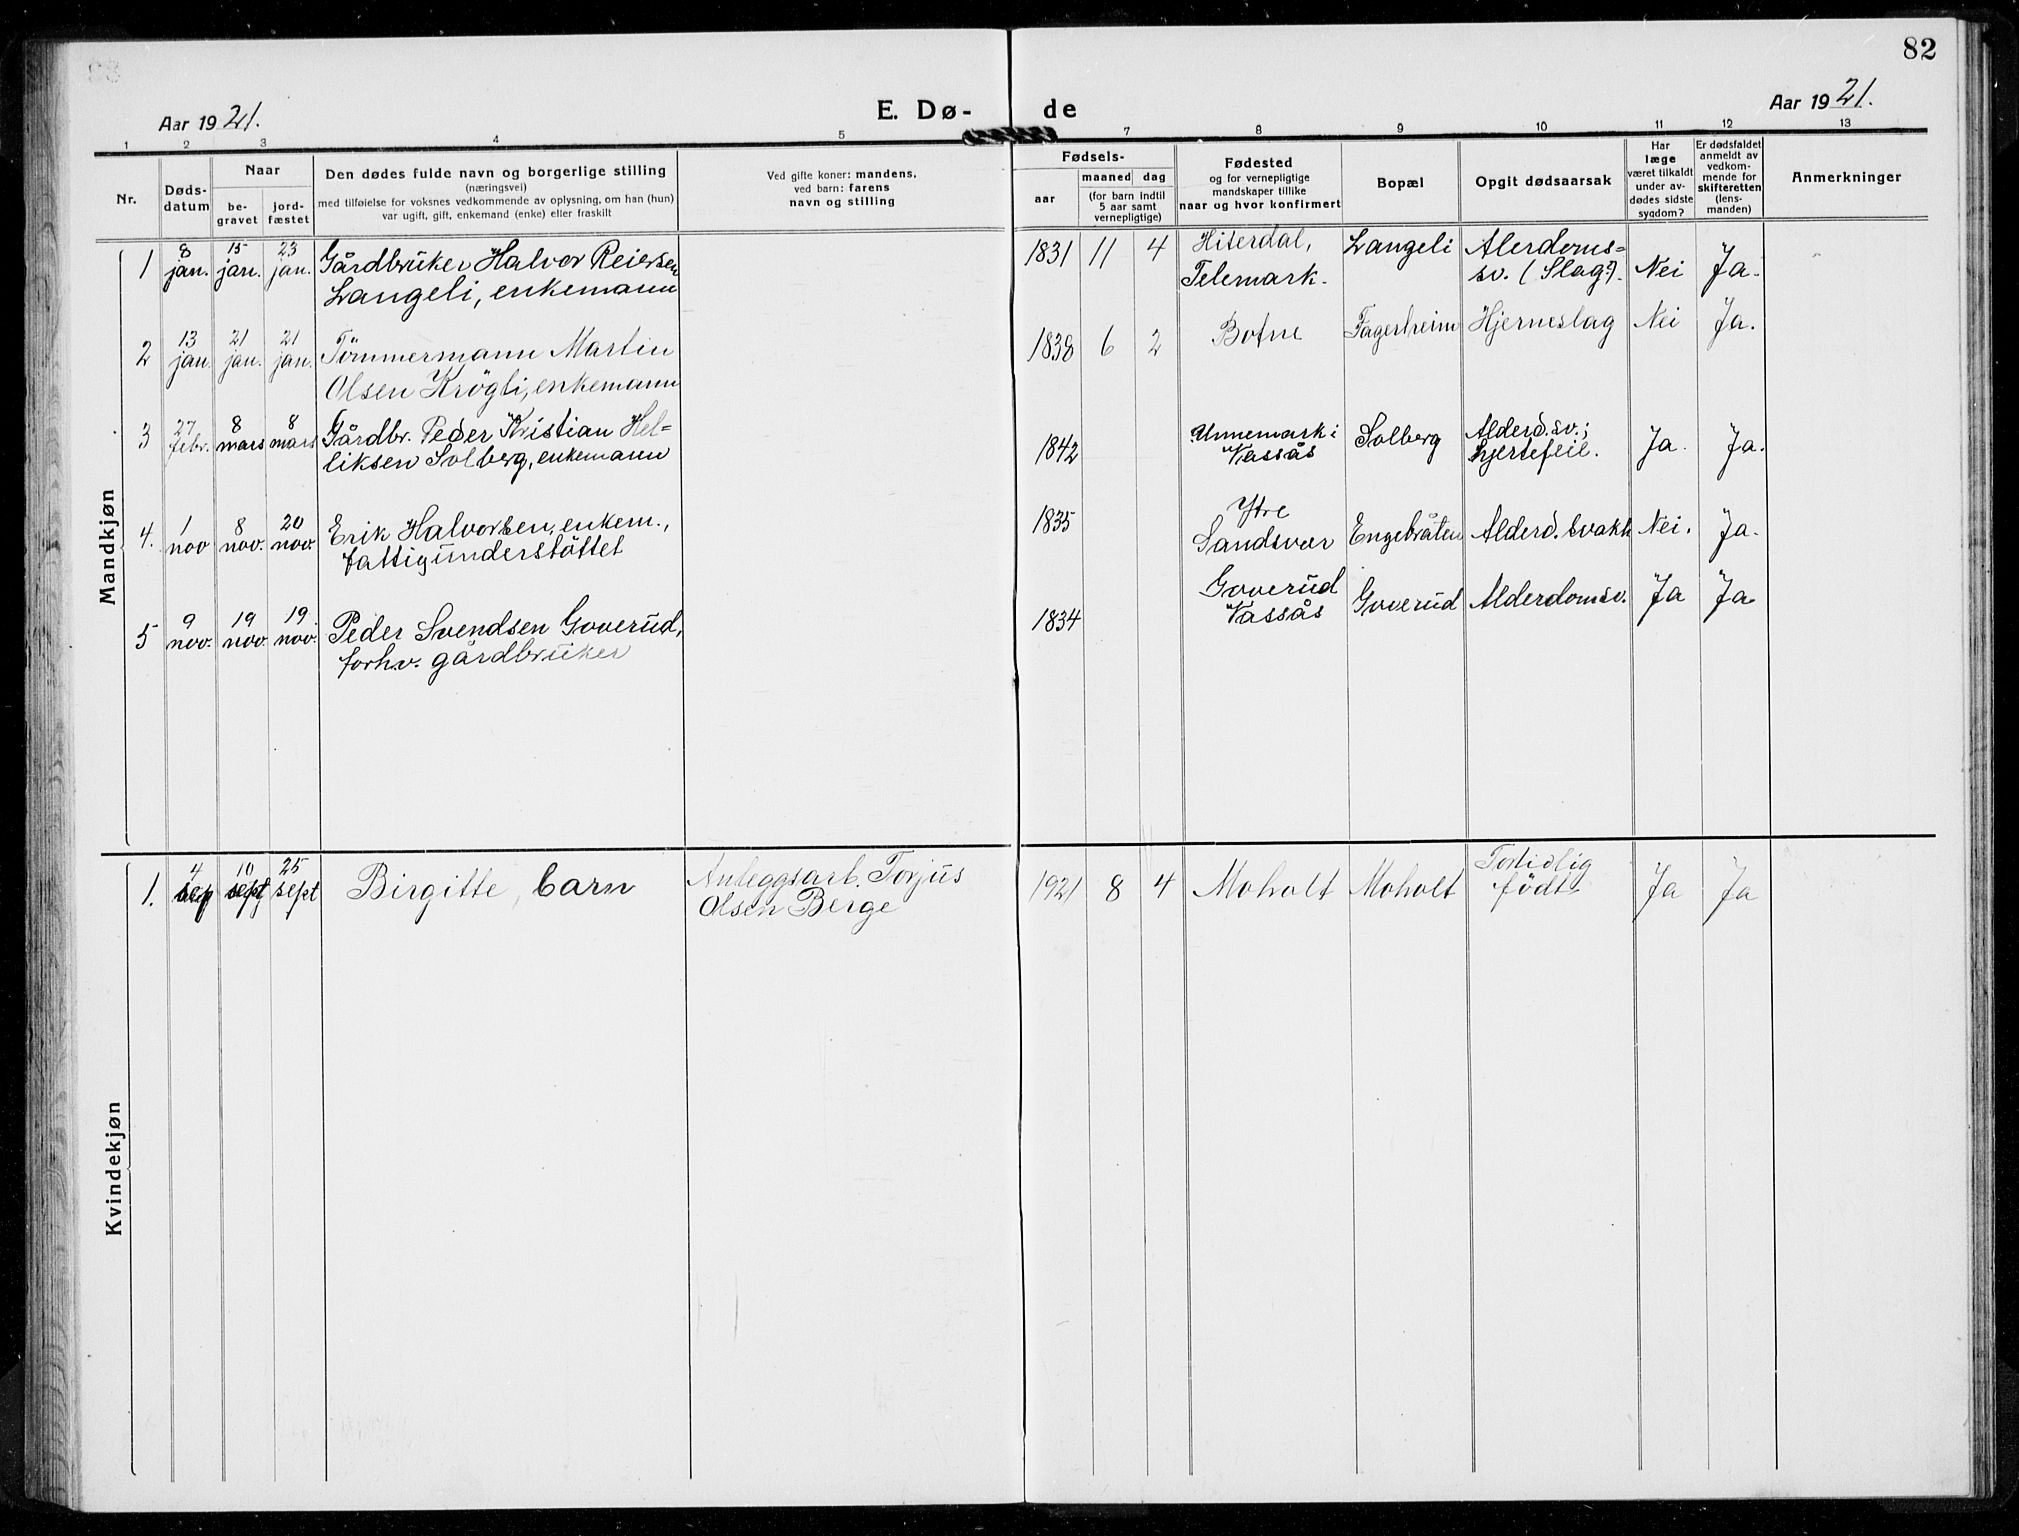 82
Aar 1921.
E. Dø-
de
Aar 1921.
1 2 3 4 5 7 8 9 10 11 12 13
Nr.
Døds-
datum
Naar
be-
gravet
jord-
fæstet
Den dødes fulde navn og borgerlige stilling
(næringsvei)
med tilføielse for voksnes vedkommende av oplysning, om han (hun)
var ugift, gift, enkemand (enke) eller fraskilt
Ved gifte koner: mandens,
ved barn: farens
navn og stilling
Fødsels-
aar
maaned dag
(for barn indtil
5 aar samt
vernepligtige)
Fødested
og for vernepligtige
mandskaper tillike
naar og hvor konfirmert
Bopæl
Opgit dødsaarsak
Har
læge
været tilkaldt
under av-
dødes sidste
sygdom?
Er dødsfaldet
anmeldt av
vedkom-
mende for
skifteretten
(lens-
manden)
Anmerkninger
Mandkjøn
8 15 23
1 jan. jan. jan. Gårdbruker Halvor Reiersen
Langeli, enkemann
1831 11 4 Hiterdal,
Telemark.
Langeli
Alerdoms=
sv. (Slag?).
Nei Ja.
13 21 21
2 jan. jan. jan. Tömmermann Martin
Olsen Krögli, enkemann
1838 6 2 Botne Fagerheim Hjerneslag Nei Ja.
27 8 8
3 febr. mars mars Gårdbr. Peder Kristian Hel=
liksen Solberg, enkemann
1842 Unnemark i
Vassås
Solberg
Alderd.sv.;
hjertefeil.
Ja. Ja.
1 8 20
4. nov nov. nov. Erik Halvorsen, enkem.,
fattigunderstöttet
1835 Ytre
Sandsvær Engebråten Alderd. svakh Nei. Ja.
9 19 19
5 nov. nov. nov. Peder Svendsen Goverud,
forhv. gårdbruker
1834 Goverud
Vassås
Goverud Alderdomsv. Ja Ja
Kvindekjøn
4 10 25
1. sep sept sept Birgitte, barn
Anleggsarb. Torjus
Olsen Berge
1921 8 4 Moholt Moholt
Fortidlig
födt.
Ja Ja